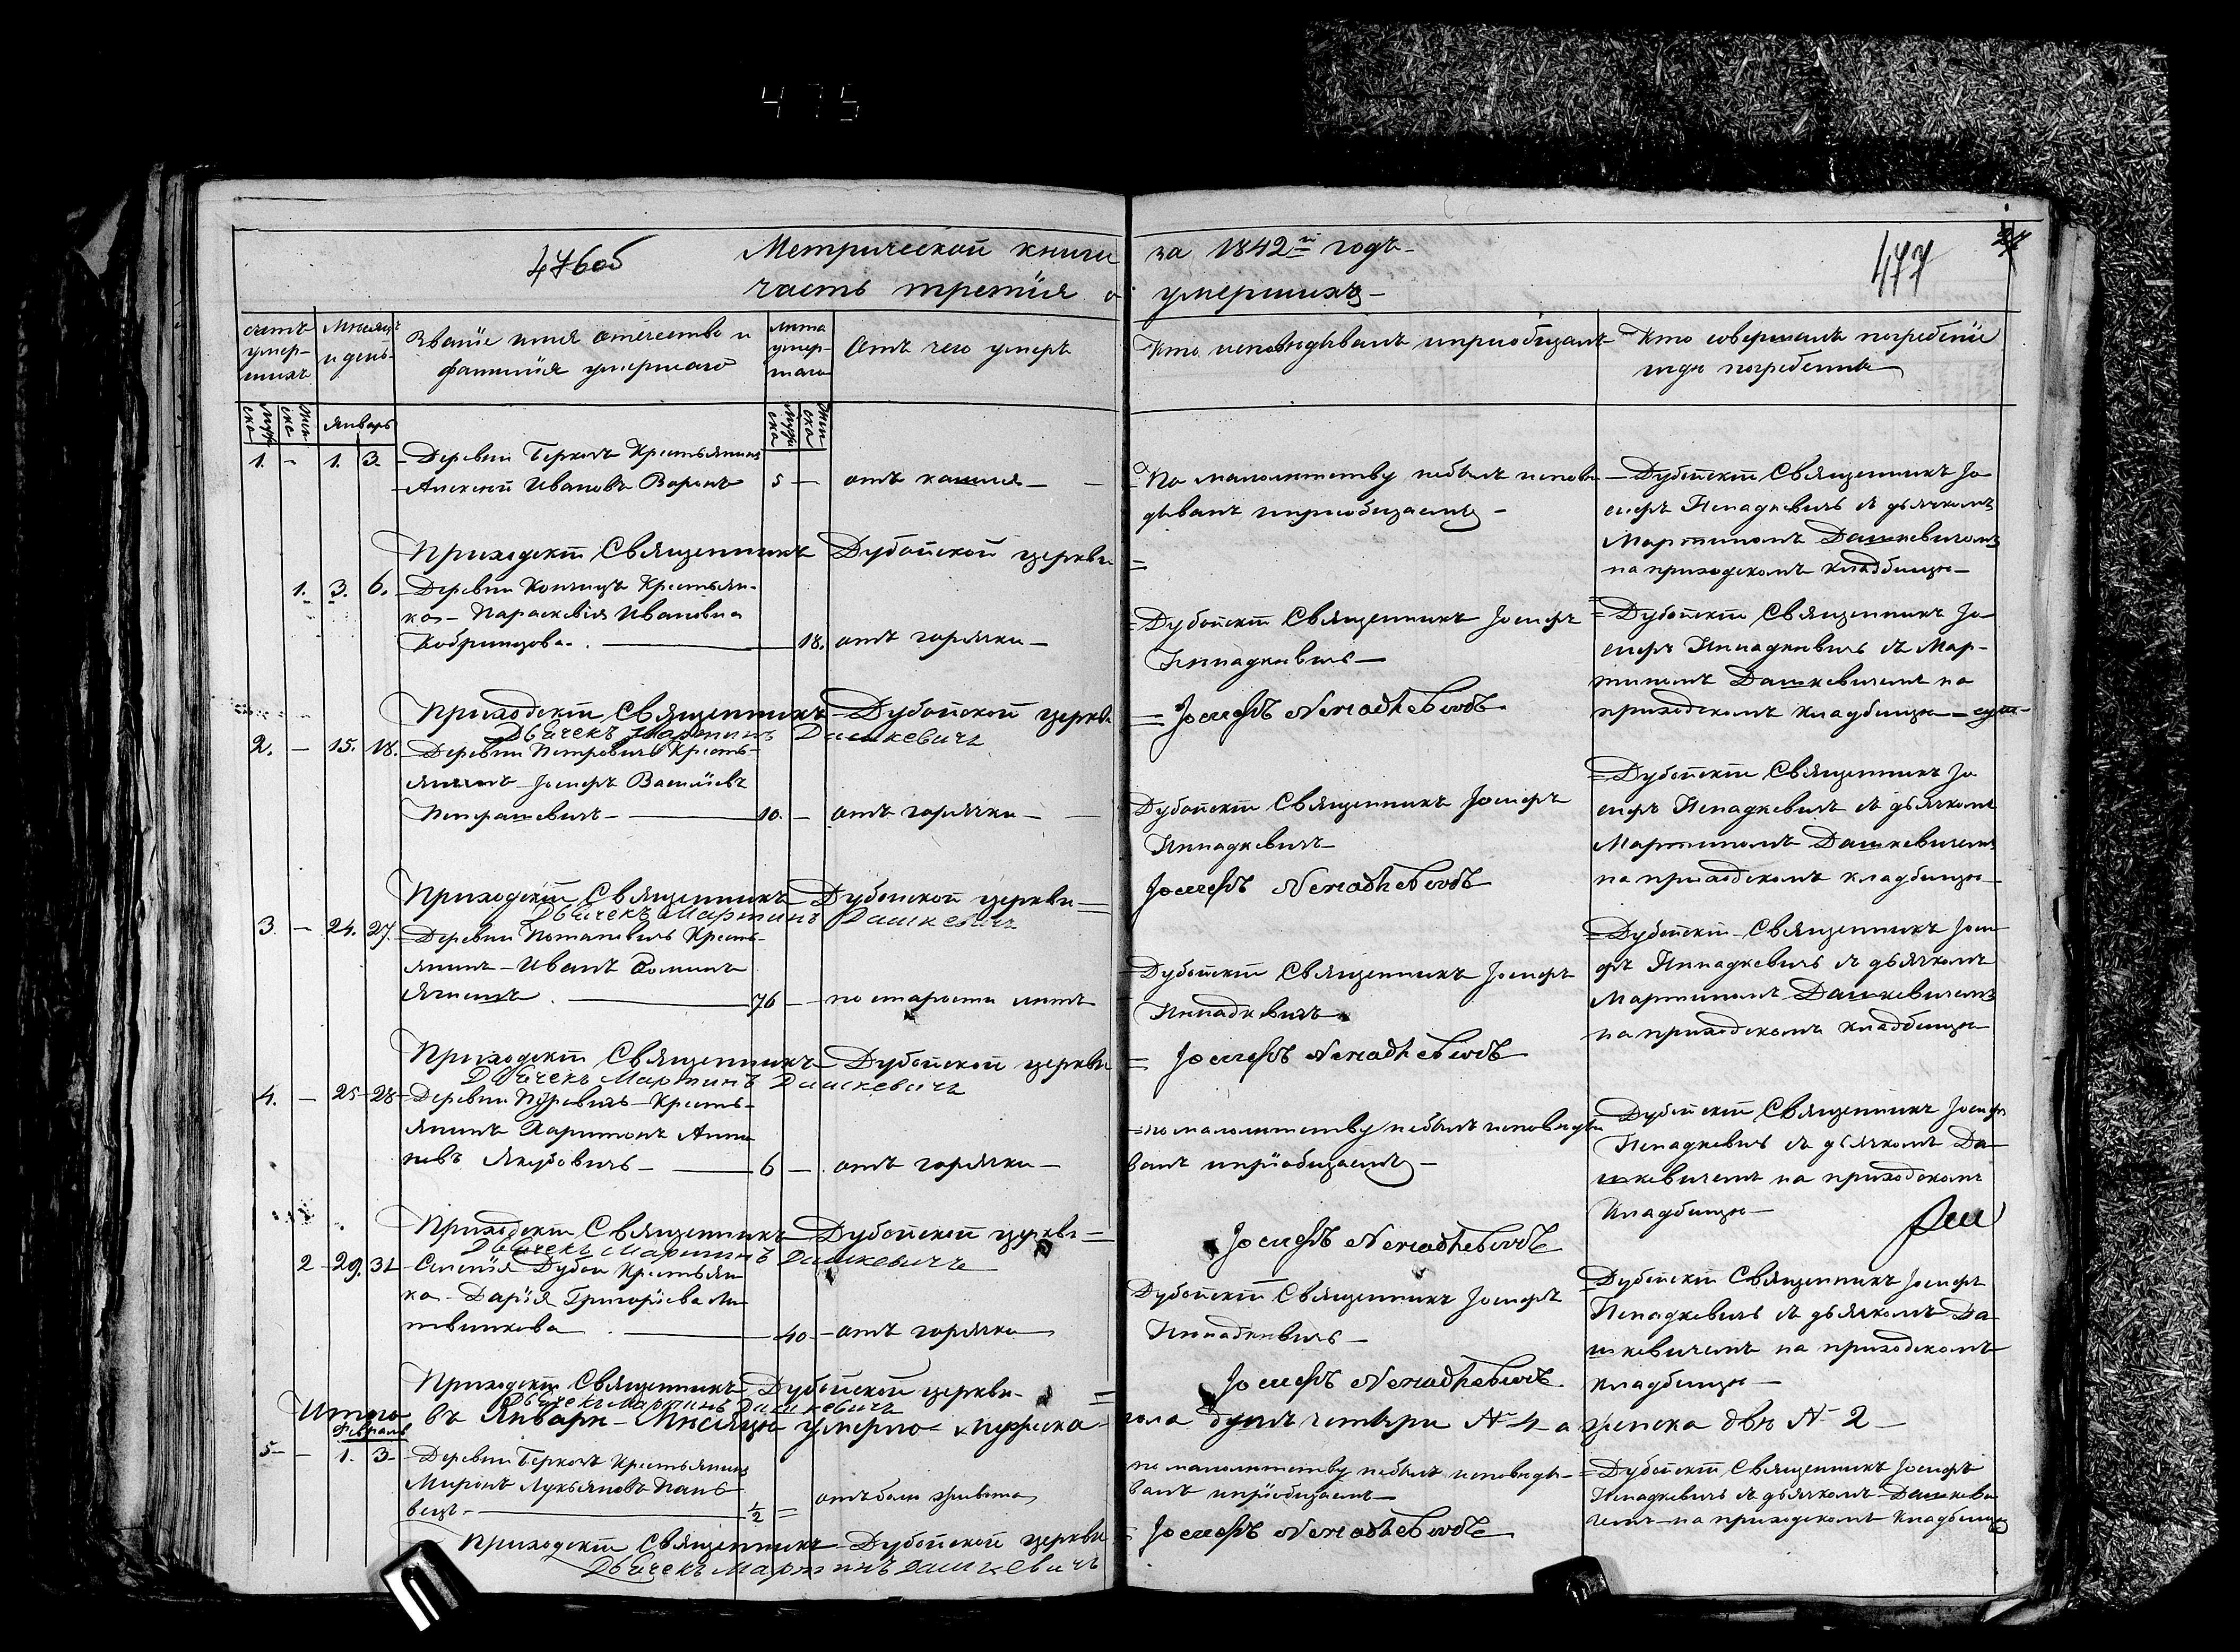 475
476об
Метрической книги за 1842й годъ
часть третія о умершихъ
477
счетъ умер-шихъ
Мѣсяцъ и день
Званіе имя отечество и
фамилія умершаго
лѣта умер-шаго
Отъ чего умеръ
Кто исповѣдывалъ и пріобщалъ
Кто совершалъ погребеніе
и гдѣ погребенъ
муже-ска
жен-ска
Январь
муже-ска
жен-ска
1. - 1. 3. Деревни Теркачъ Крестьянинъ
Алексѣй Ивановъ Воронъ 5 - отъ кашля -
По малолѣтству небылъ исповѣ
дыванъ и пріобщаемъ -
Дубойскій Священникъ Іо
сифъ Ненадкевичь съ дьячкомъ
Мартиномъ Дашкевичемъ
на приходскомъ кладбищѣ
Приходскій Священникъ Дубойской церкви =
1. 3. 6. Деревни Крестьян-
ка - Параскевія Иванова
Кобринцова. 18. отъ горячки -
Дубойскій Священникъ Іосифъ
Ненадкевичь -
Дубойскій Священникъ Іо
сифъ Ненадкевичь съ Мар-
тиномъ Дашкевичемъ на
приходскомъ кладбищѣ
Приходскій Священникъ Дубойской церкви = Іосифъ Ненадкевичъ
Дьячекъ Мартинъ Дашкевичъ
2. - 15. 18. Деревни Петровичь Кресть-
янинъ Іосифъ Васильевъ
10. - отъ горячки -
Дубойскій Священникъ Іосифъ
Ненадкевичъ -
Дубойскій Священникъ Іо
сифъ Ненадкевичъ съ дьячкомъ
Мартиномъ Дашкевичемъ
на приходскомъ кладбищѣ
Приходскій Священникъ Дубойской церкви = Іосифъ Ненадкевичъ
Дьячекъ Мартинъ Дашкевичъ
3. - 24. 27. Деревни Потаповичь Кресть-
янинъ - Иванъ Фоминъ
76 - по старости лѣтъ
Дубойскій Священникъ Іосифъ
Ненадкевичъ
Дубойскій Священникъ Іоси
фъ Ненадкевичь съ дьячкомъ
Мартиномъ Дашкевичемъ
на приходскомъ кладбищѣ
Приходскій Священникъ Дубойской церкви = Іосифъ Ненадкевичъ
Дьячекъ Мартинъ Дашкевичъ
4. - 25 - 28 Деревни Кресть-
янинъ Харитонъ
Якубовичь - 6 - отъ горячки -
по малолѣтству небылъ исповѣды
ванъ и пріобщаемъ -
Дубойскій Священникъ Іосифъ
Ненадкевичь съ дьячкомъ Да
шкевичемъ на приходскомъ
кладбищѣ -
Приходскій Священникъ Дубойской церкви = Іосифъ Ненадкевичъ
Дьячекъ Мартинъ Дашкевичъ
2 - 29. 31 Селенія Дубои Крестьян
ка - Дарія Григоріева Ли
твинкова 40 - отъ горячки
Дубойскій Священникъ Іосифъ
Ненадкевичь -
Дубойскій Священникъ Іосифъ
Ненадкевичь съ дьячкомъ Да
шкевичемъ на приходскомъ
кладбищѣ -
Приходскій Священникъ Дубойской церкви - = Іосифъ Ненадкевичъ
Дьячекъ Мартинъ Дашкевичъ
Итого въ Январѣ Мѣсяцѣ умерло мужеска пола душъ четыри № 4 а женска двѣ № 2 -
Февраль
5 - - 1. 3 - Деревни Теркачъ Крестьянинъ
Миронъ Лукьяновъ
вецъ - 1/2 = отъ боли живота
по малолѣтству небылъ исповѣды-
ванъ и пріобщаемъ -
Дубойскій Священникъ Іосифъ
Ненадкевичь съ дьячкомъ Дашкеви
чемъ - на приходскомъ кладбищѣ
Приходскій Священникъ Дубойской церкви = Іосифъ Ненадкевичъ
Дьячекъ Мартинъ Дашкевичъ